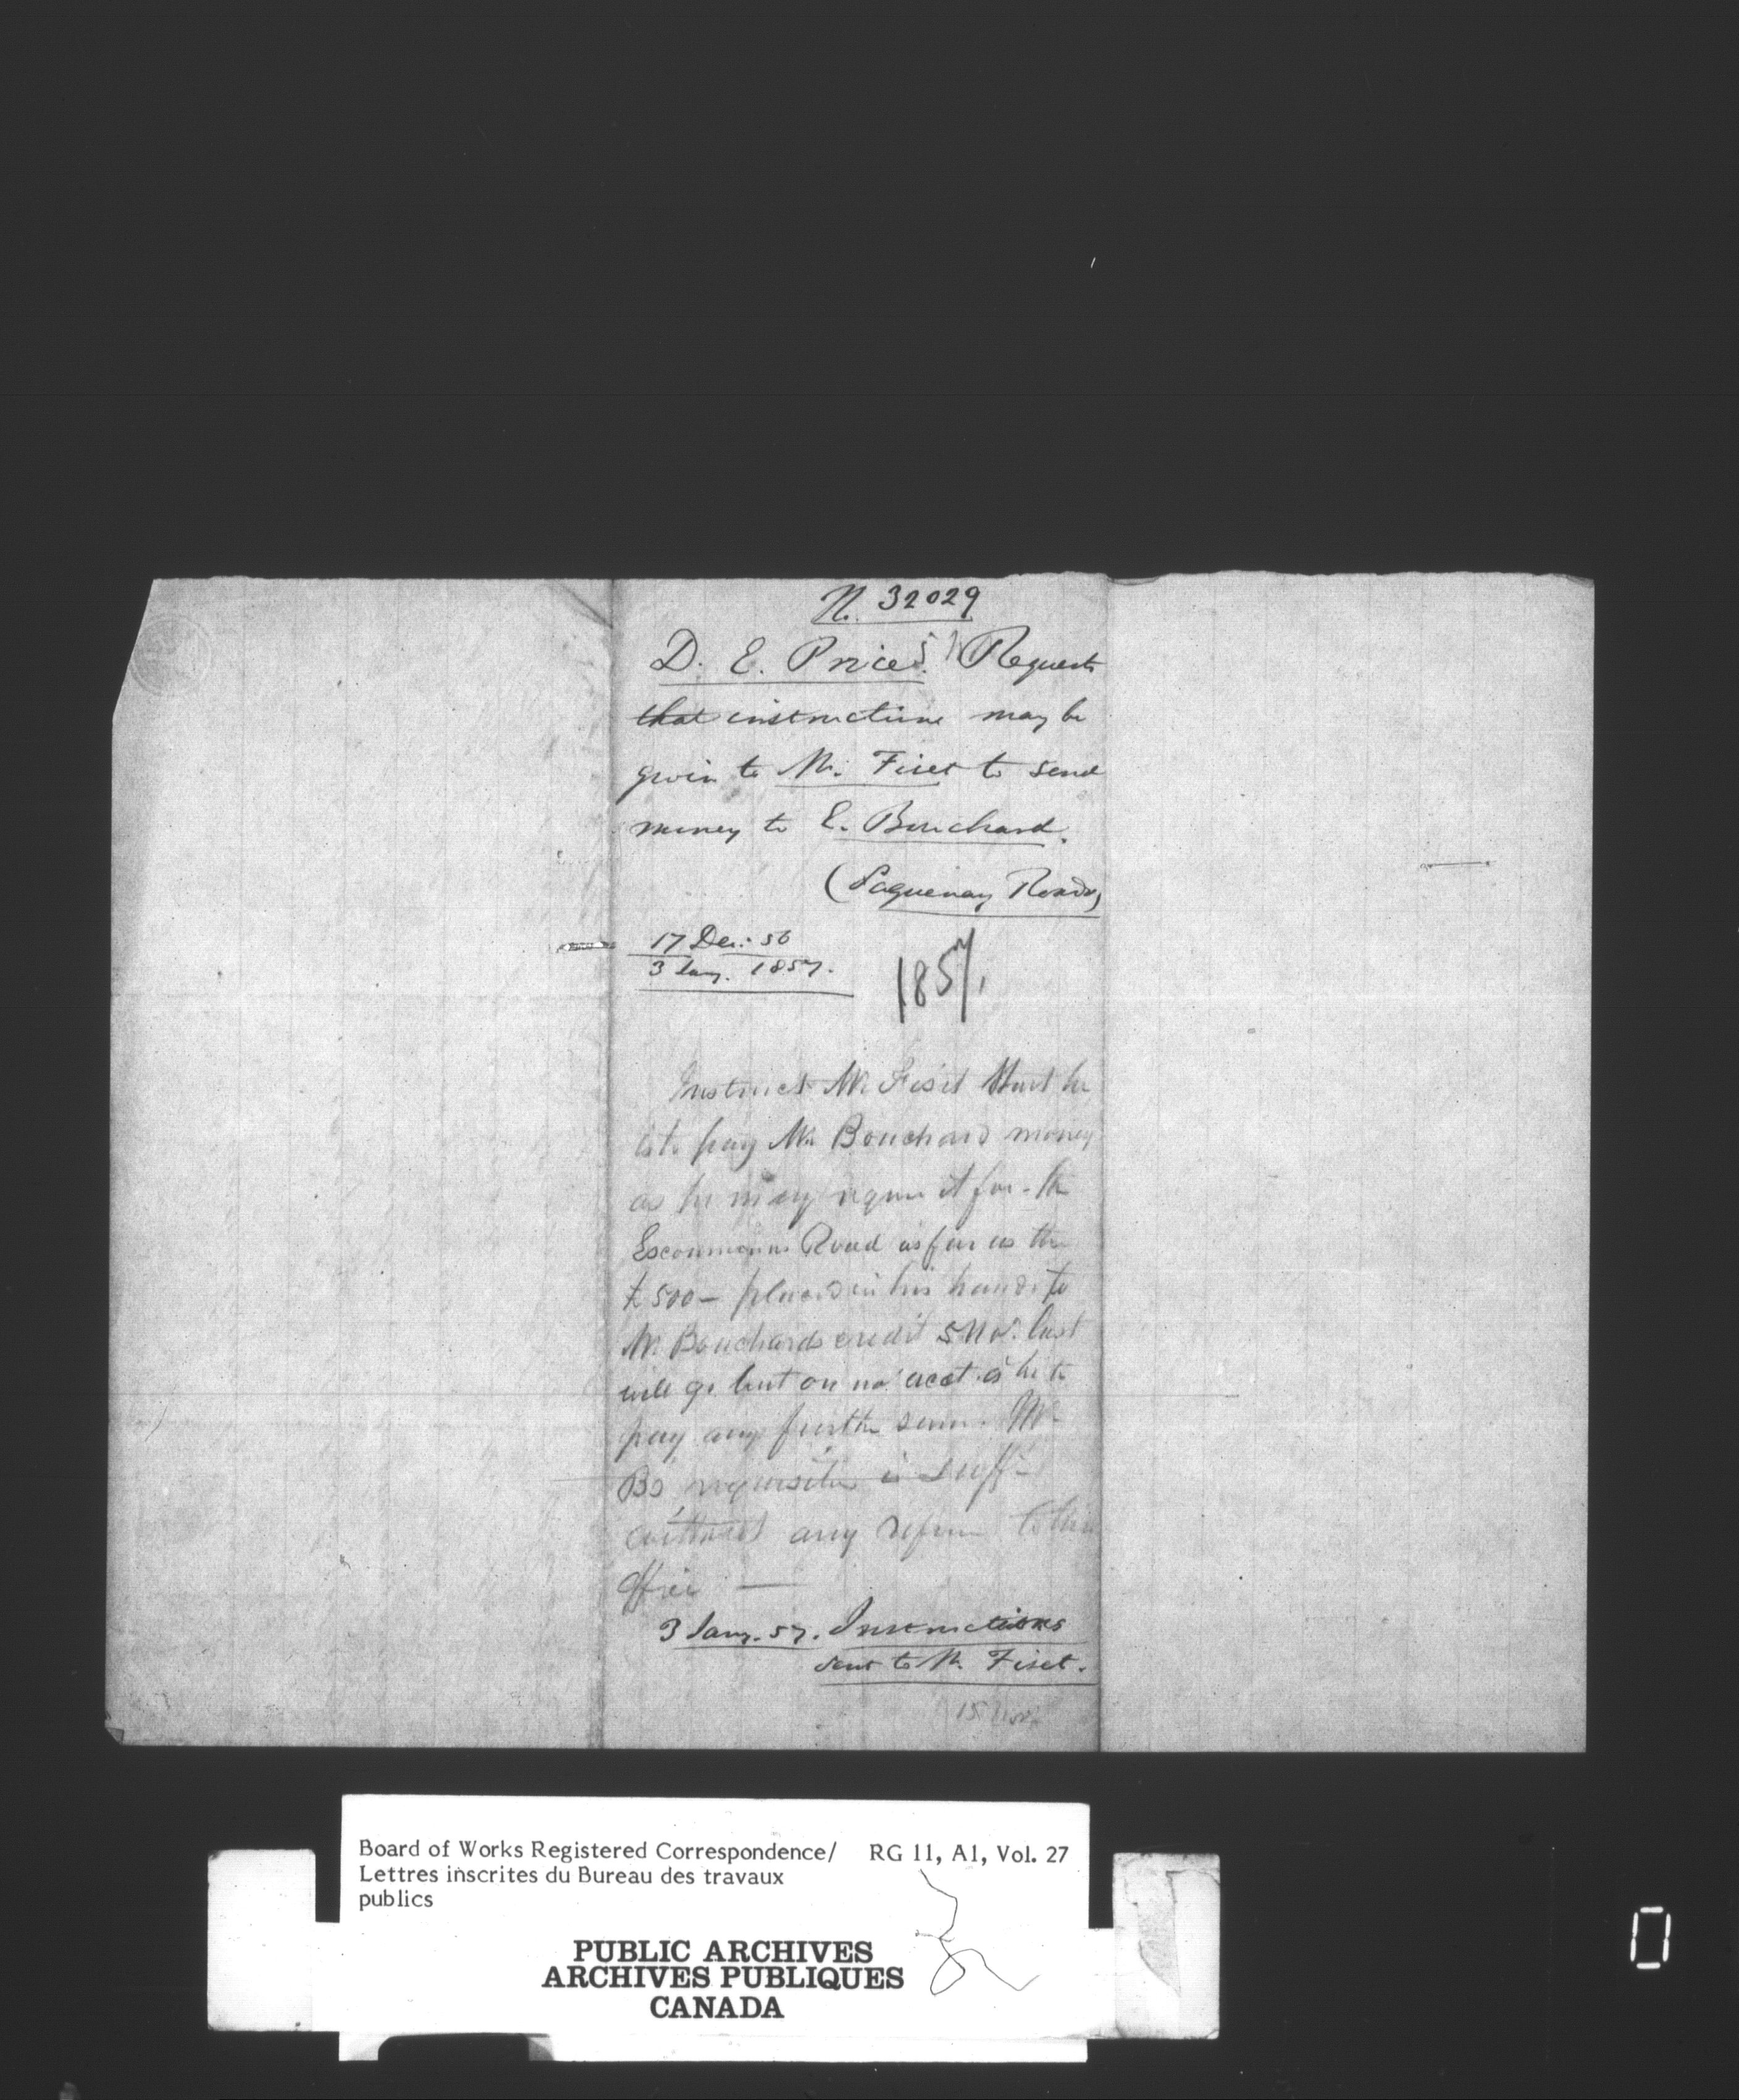 N. 32029
D. E. Price. Requests
that instructions may be
given to Mr. Fiset to send
money to E. Bouchard.
(Saguenay Roads)
17 Dec: 56
3 Jany. 1857.
1857.
Instruct Mr Fiset that he
is to pay Mr Bouchard money
as he may require it for the
Escoumains Road as far as the
£500 - placed in his hands to
Mr Bouchards credit 5 Nov. last
will go but on no acct. is he to
pay any further sum. Mr
Bs requisition is suff
without any refern to this
office —
3 Jany. 57. Instructions
sent to Mr. Fiset.
Board of Works Registered Correspondence/ RG 11, A1, Vol. 27
Lettres inscrites du Bureau des travaux
publics
PUBLIC ARCHIVES
ARCHIVES PUBLIQUES
CANADA